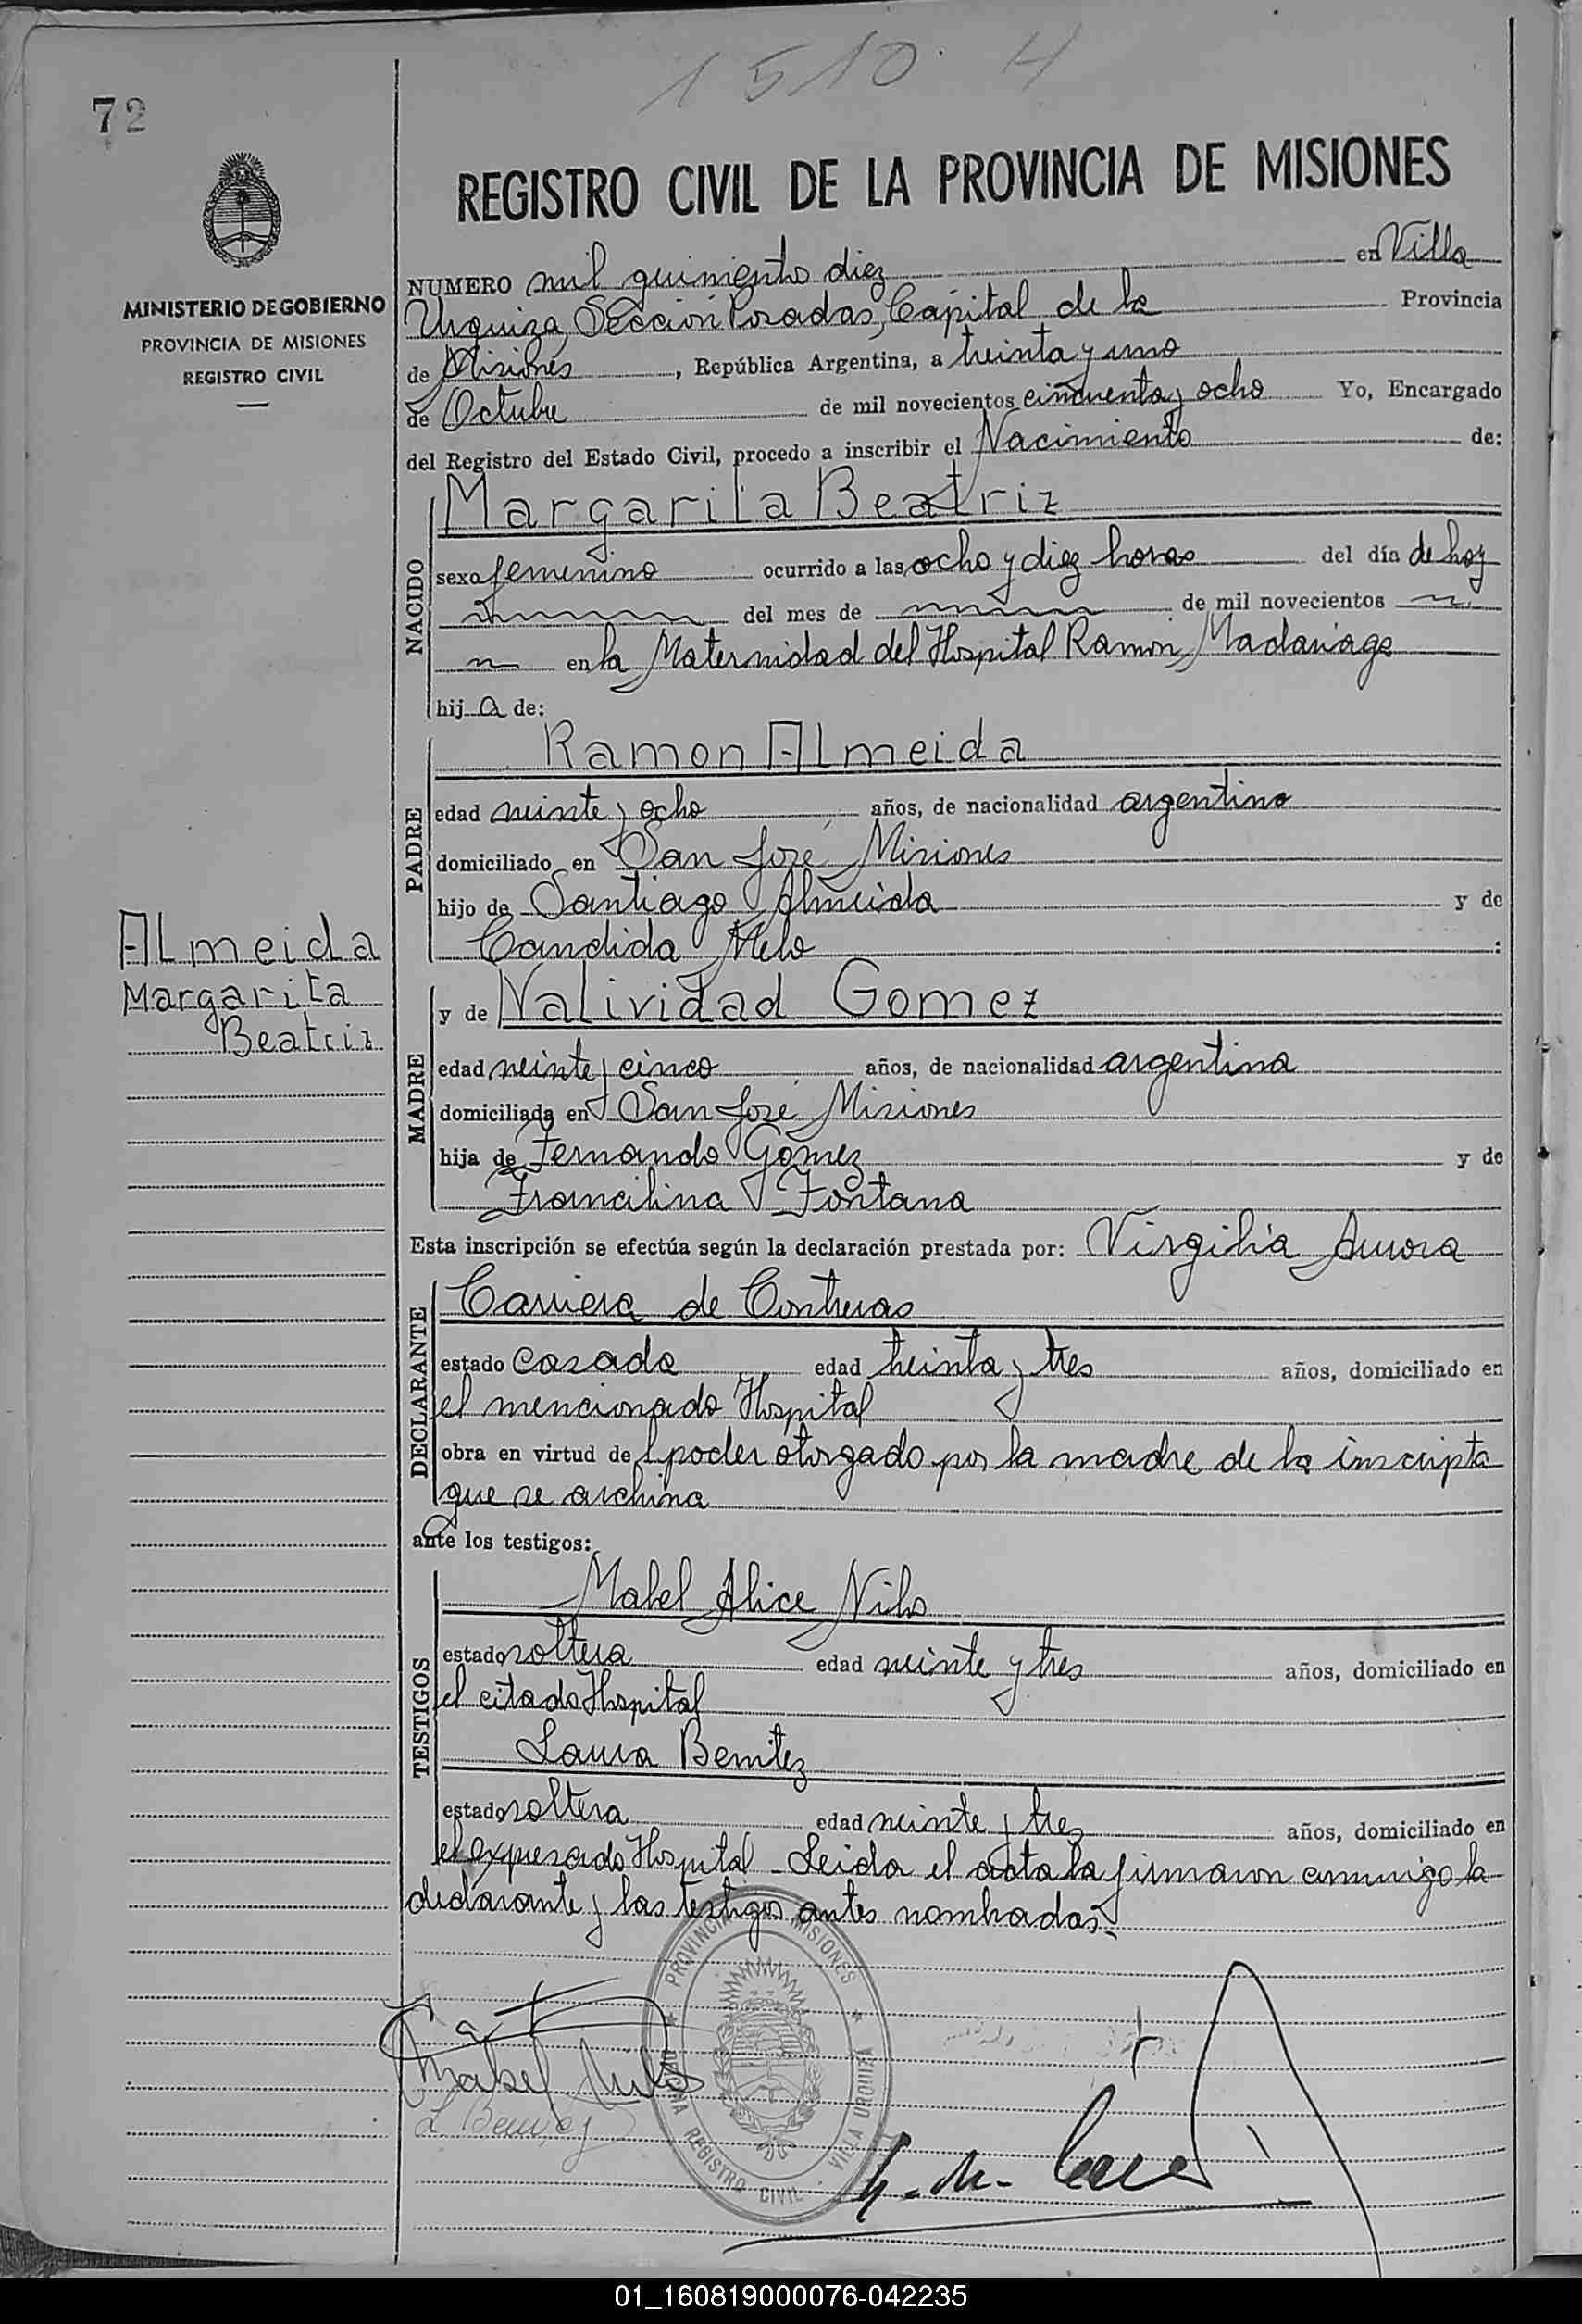 1510. H
72
REGISTRO CIVIL DE LA PROVINCIA DE MISIONES
MINISTERIO DE GOBIERNO
PROVINCIA DE MISIONES
REGISTRO CIVIL
NUMERO mil quiniento diez en Villa
Urquiza, Sección Posadas, Capital de la Provincia
de Misiones, República Argentina, a treinta y uno
de Octubre de mil novecientos cincuenta y ocho Yo, Encargado
del Registro del Estado Civil, procedo a inscribir el Nacimiento de:
NACIDO
Margarita Beatriz
sexo femenino ocurrido a las ocho y diez horas del día de hoy
del mes de de mil novecientos
en la Maternidad del Hospital Ramon Madariaga
hij a de:
PADRE
Ramon Almeida
edad veinte y ocho años, de nacionalidad argentino
domiciliado en San José, Misiones
hijo de Santiago Almeida y de
Candida Melo :
Almeida
Margarita
Beatriz
MADRE
y de Natividad Gomez
edad veinte y cinco años, de nacionalidad argentina
domiciliada en San José, Misiones
hija de Fernando Gomez y de
Francilina Fontana
Esta inscripción se efectúa según la declaración prestada por: Virgilia Aurora
DECLARANTE
Carriera de Contreras
estado casada edad treinta y tres años, domiciliado en
el mencionado Hospital
obra en virtud del poder otorgado por la madre de la inscripta
que se archiva
ante los testigos:
TESTIGOS
Mabel Alice Nilo
estado soltera edad veinte y tres años, domiciliado en
el citado Hospital
Laura Benitez
estado soltera edad veinte y tres años, domiciliado en
el expresado Hospital - Leida el acta la firmaron conmigo la
declarante y las testigos antes nombradas.
Mabel Nilo
L. Benitez
PROVINCIA MISIONES
OFICINA REGISTRO CIVIL - VILLA URQUIZA
01_160819000076-042235